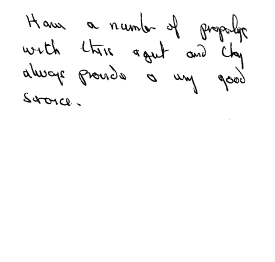 Have a number of properties
with this agent and they
always provide a very good
service.